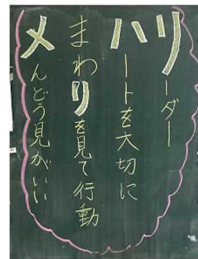 リーダー
ハートを大切に
まわりを見て行動
メんどう見がいい